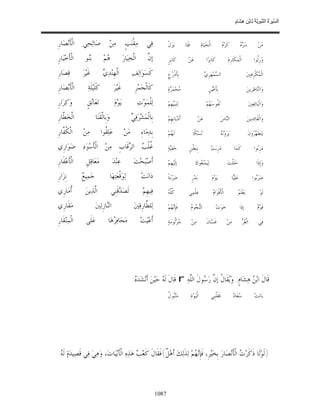 السّيرَةُ النّبَوِيّةُ لابْنِ هِشَام
مَنْ سَرّهُ كَرَمُ الْحَيَاةِ فَلَا يَزَلْ فِي مِقْنَبٍ مِنْ صَالِحِي الْأَنْصَارِ
وَرِثُوا الْمَكَارِمَ كَابِرًا عَنْ كَابِرٍ إنّ الْخِيَارَ هُمْ بَنُو الْأَخْيَارِ
الْمُكْرِهِينَ السّمْهَرِيّ بِأَذْرُعٍ كَسَوَالِفِ الْهِنْدِيّ غَيْرِ قِصَارِ
وَالنّاظِرِينَ بِأَعْيُنٍ مُحْمَرّةٍ كَالْجَمْرِ غَيْرِ كَلِيلَةِ الْأَبْصَارِ
وَالْبَائِعِينَ نُفُوسَهُمْ لِنَبِيّهِمْ لِلْمَوْتِ يَوْمَ تَعَانُقٍ وَكِرَارِ
وَالْقَائِدِينَ النّاسَ عَنْ أَدْيَانِهِمْ بِالْمَشْرَفِيّ وَبِالْقَنَا الْخَطّارِ
يَتَطَهّرُونَ يَرَوْنَهُ نُسُكًا لَهُمْ بِدِمَاءِ مَنْ عَلِقُوا مِنْ الْكُفّارِ
دَرِبُوا كَمَا دَرِبَتْ بِبَطْنِ خَفِيّةٍ غُلْبُ الرّقَابِ مِنْ الْأُسُودِ ضَوَارِي
وَإِذَا حَلَلْت لِيَمْنَعُوك إلَيْهِمْ أَصْبَحْتَ عِنْدَ مَعَاقِلِ الْأَعْفَارِ
ضَرَبُوا عَلِيّا يَوْمَ بَدْرٍ ضَرْبَةً دَانَتْ لِوَقْعَتِهَا جَمِيعُ نِزَارِ
لَوْ يَعْلَمُ الْأَقْوَامُ عِلْمِي كُلّهُ فِيهِمْ لَصَدّقَنِي الّذِينَ أُمَارِي
قَوْمٌ إذَا خَوَتْ النّجُومُ فَإِنّهُمْ لِلطّارِقِينَ النّازِلِينَ مَقَارِي
فِي الْغُرّ مِنْ غَسّانَ مِنْ جُرْثُومَةٍ أَعْيَتْ مَحَافِرُهَا عَلَى الْمِنْقَارِ
قَالَ ابْنُ هِشَامٍ وَيُقَالُ إنّ رَسُولَ اللّهِ قَالَ لَهُ حَيْنَ أَنْشَدَهُ
بَانَتْ سُعَادُ فَقَلْبِي الْيَوْمَ مَتْبُولُ
(لَوْلَا ذَكَرْتَ الْأَنْصَارَ بِخَيْرٍ، فَإِنّهُمْ لِذَلِكَ أَهْلٌ) فَقَالَ كَعْبٌ هَذِهِ الْأَبْيَاتَ، وَهِيَ فِي قَصِيدَةٍ لَهُ
1087